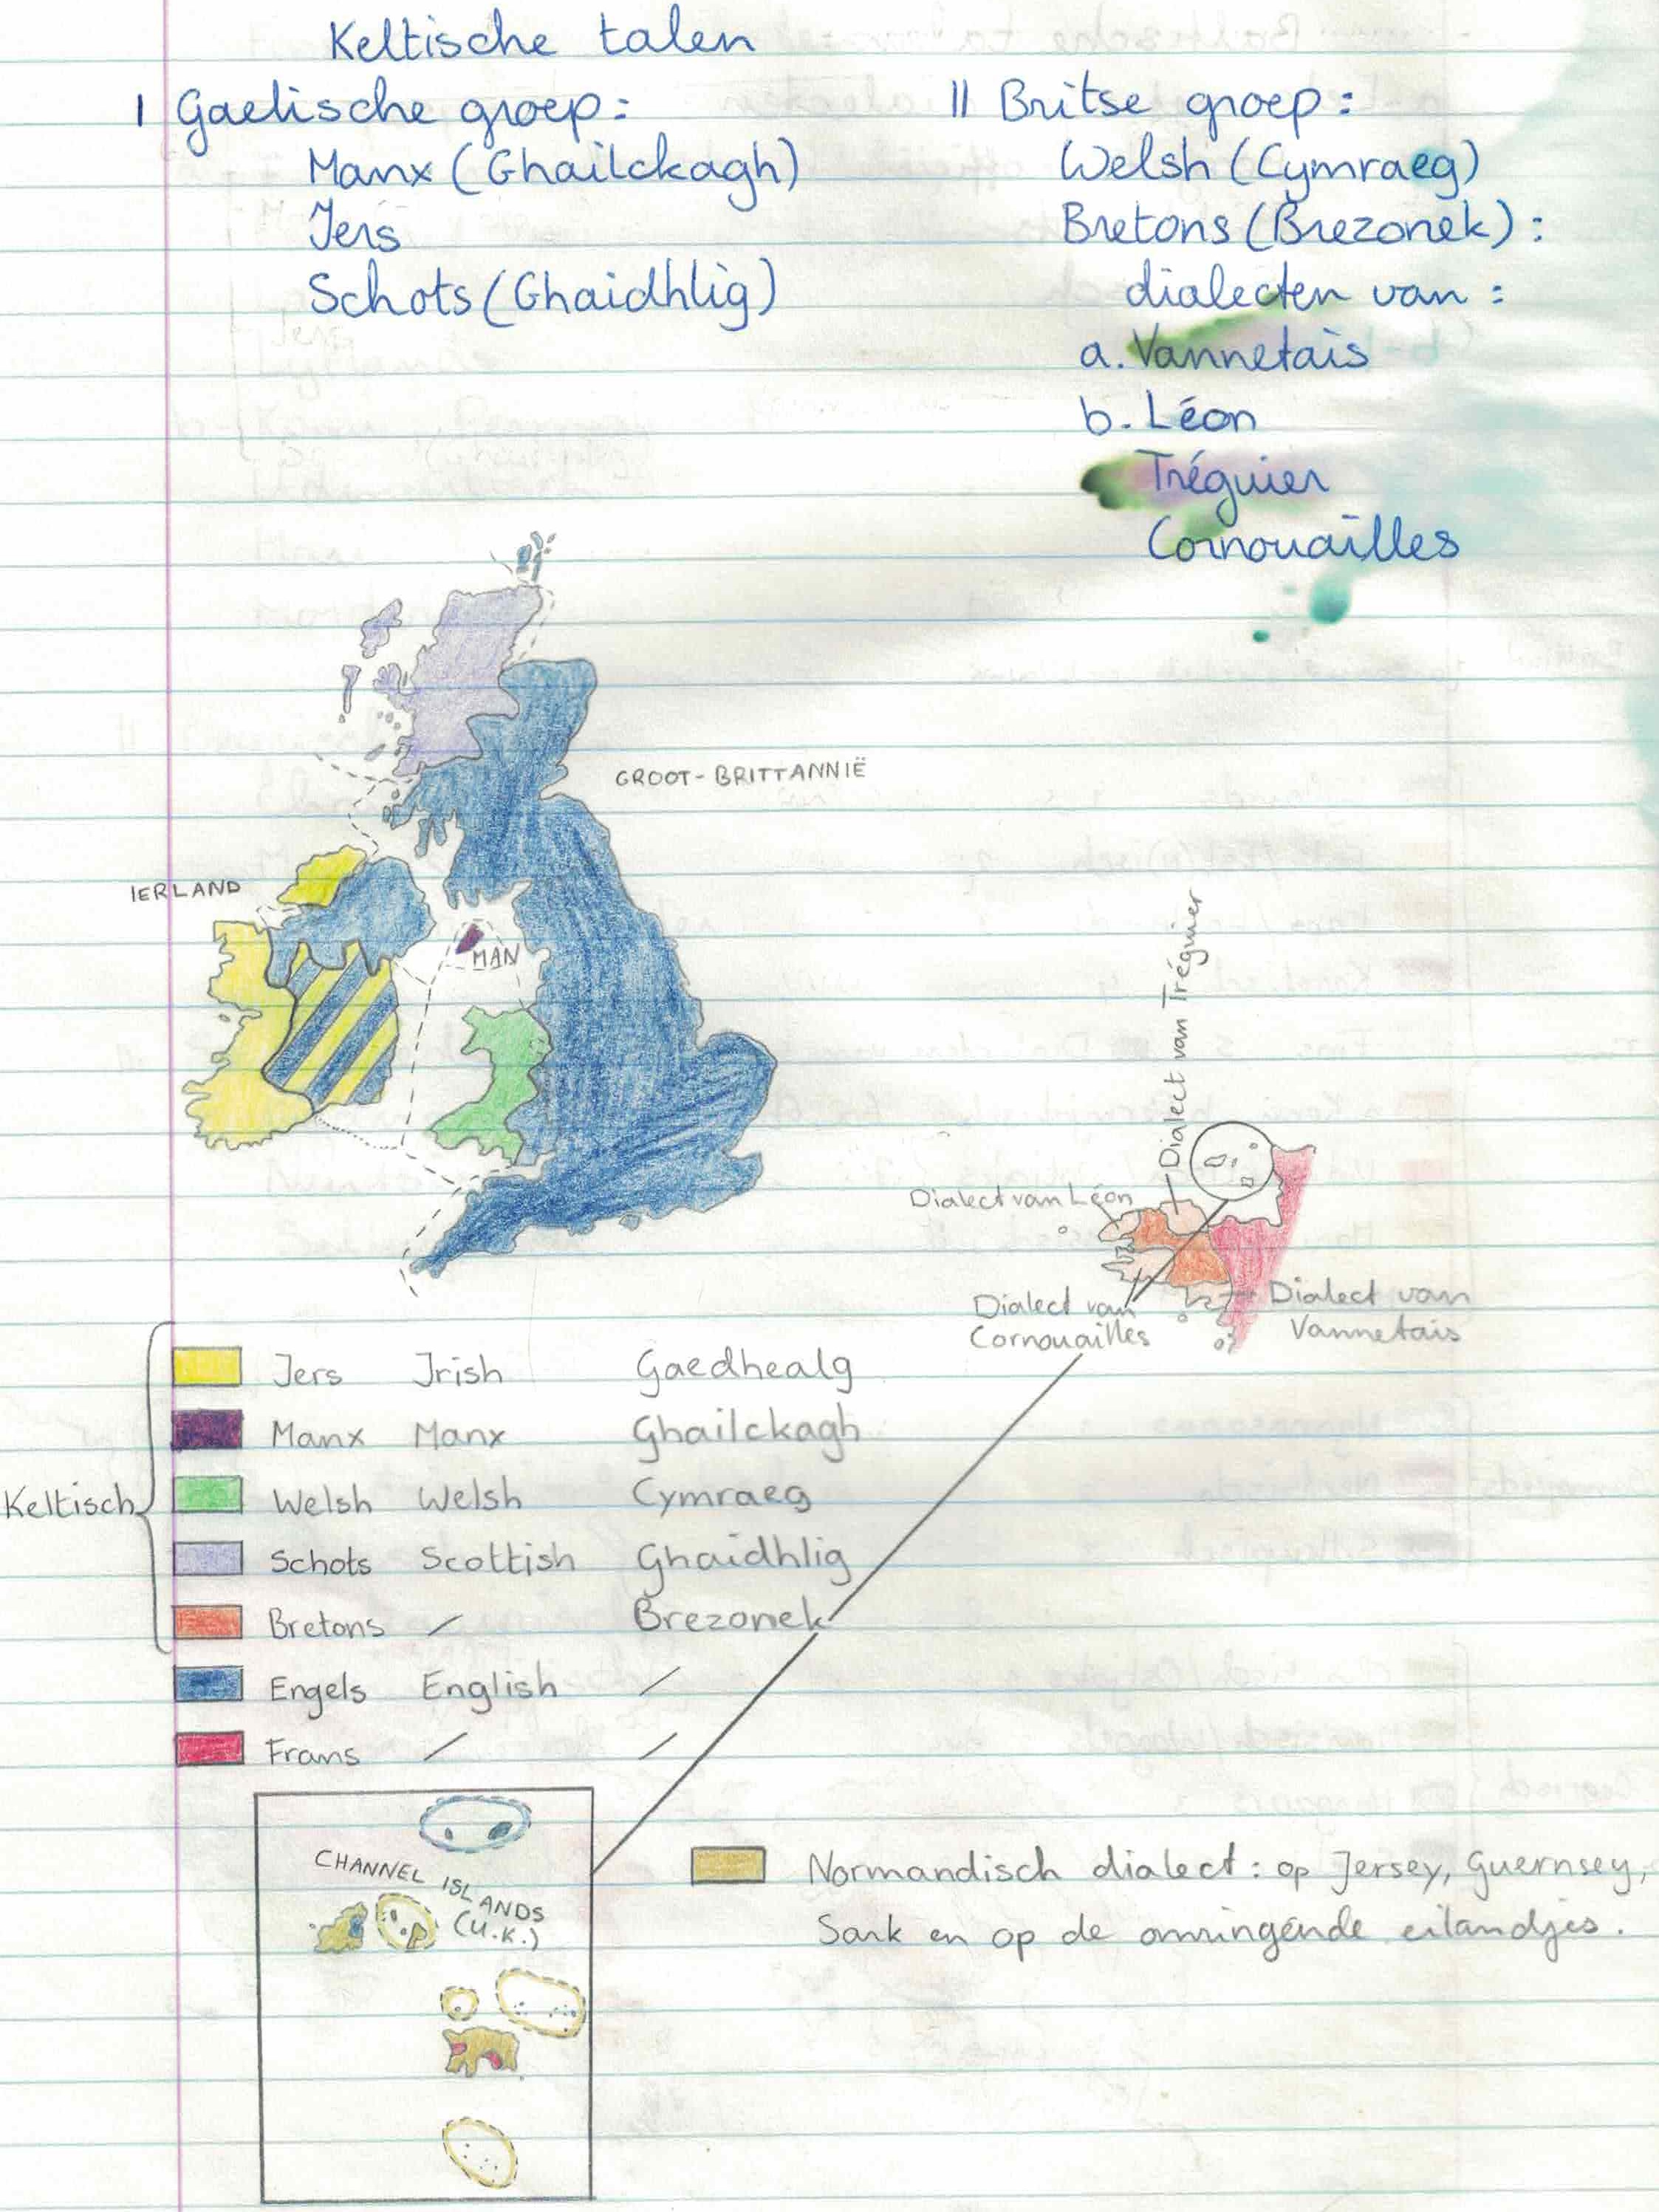 Keltische talen
I Gaelische groep:
Manx (Ghailckagh)
Iers
Schots (Ghaidhlig)
II Britse groep:
Welsh (Cymraeg)
Bretons (Brezonek):
dialecten van:
a. Vannetais
b. Léon
Tréguier
Cornouailles
GROOT-BRITTANNIË
IERLAND
MAN
Dialect van Tréguier
Dialect van Léon
Dialect van
Cornouailles
Dialect van
Vannetais
Keltisch
Iers Irish Gaedhealg
Manx Manx Ghailckagh
Welsh Welsh Cymraeg
Schots Scottish Ghaidhlig
Bretons / Brezonek
Engels English /
Frans / /
CHANNEL ISLANDS
(U.K.)
Normandisch dialect: op Jersey, Guernsey,
Sark en op de omringende eilandjes.